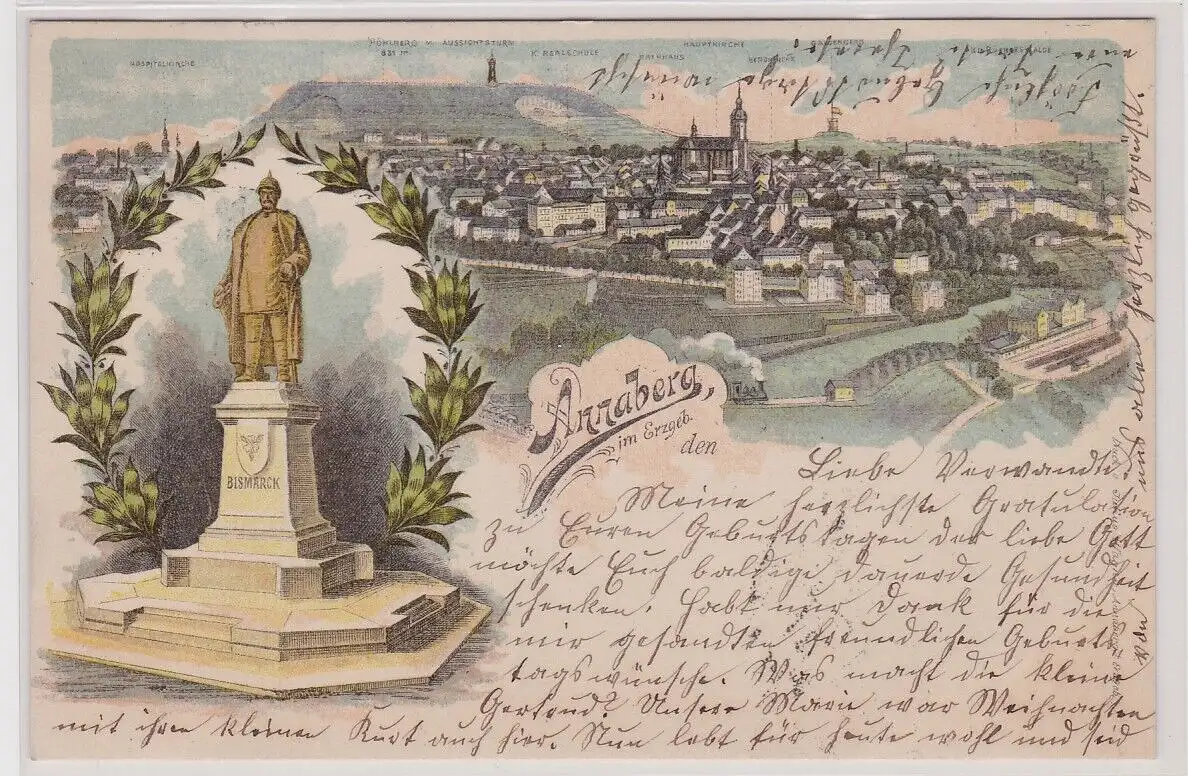 HOSPITALKIRCHE
PÖHLBERG M. AUSSICHTSTURM
831 m
K. REALSCHULE
RATHHAUS
HAUPTKIRCHE
BERGKIRCHE
BISMARCK
Annaberg,
im Erzgeb.
den
Liebe Verwandte
Meine herzlichste Gratulation
zu Euren Geburtstagen der liebe Gott
möchte Euch baldige dauerde Gesundheit
schenken. Habt nur Dank für die
mir gesandten freundlichen Geburts
tagswünsche. Was macht die kleine
Gertrud? Unsere Marie war Weihnachten
mit ihren kleinen Kurt auch hier. Nun lebt für heute wohl und seid
von allen herzlich gegrüßt.